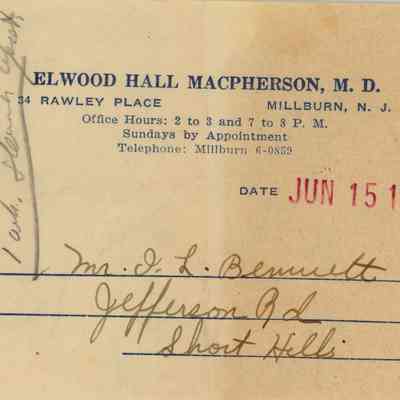 ELWOOD HALL MACPHERSON, M. D.
34 RAWLEY PLACE MILLBURN, N. J.
Office Hours: 2 to 3 and 7 to 8 P. M.
Sundays by Appointment
Telephone: Millburn 6-0859
DATE JUN 15 1
Mr. I. L. Bennett
Jefferson Rd
Short Hills